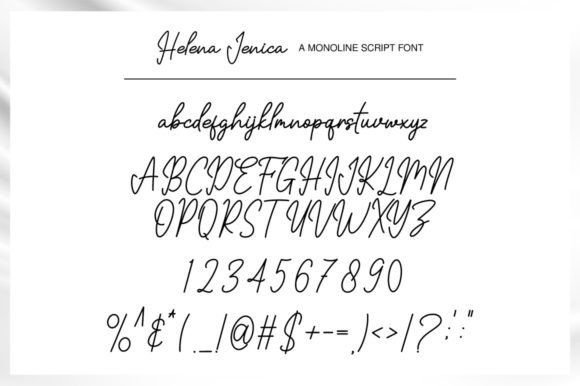 Helena Jenica A MONOLINE SCRIPT FONT
abcdefghijklmnopqrstuvwxyz
ABCDEFGHIJKLMN
OPQRSTUVWXYZ
1234567890
%^&*(_!@#$+-=,)<>/?:;'"